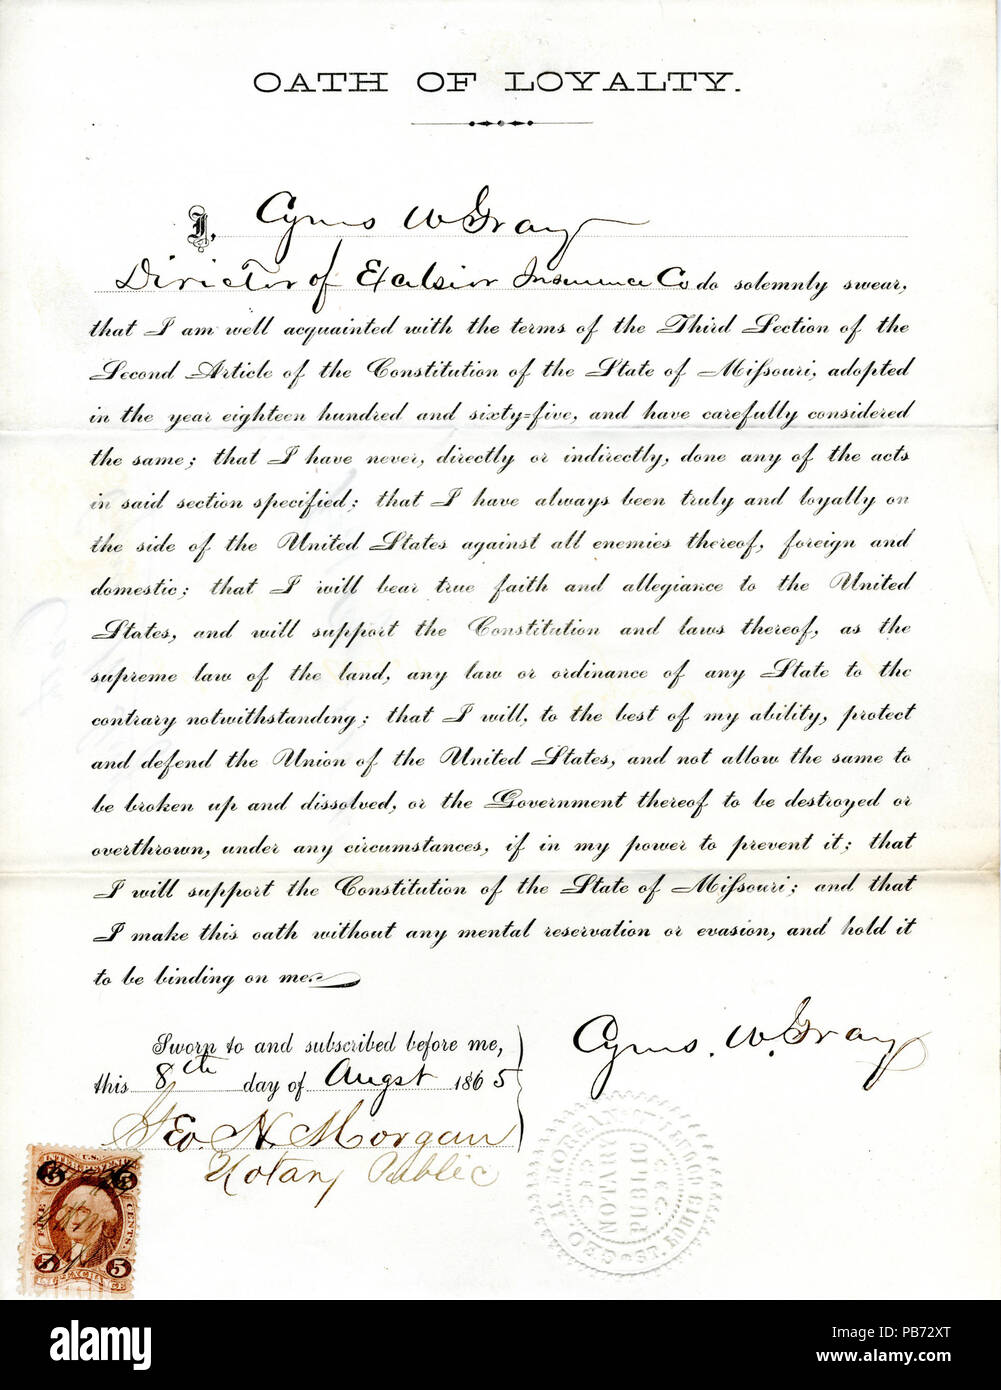 OATH OF LOYALTY.
I, Cyrus W Gray
Director of Excelsior Insurence Co do solemnly swear,
that I am well acquainted with the terms of the Third Section of the
Second Article of the Constitution of the State of Missouri, adopted
in the year eighteen hundred and sixty=five, and have carefully considered
the same; that I have never, directly or indirectly, done any of the acts
in said section specified; that I have always been truly and loyally on
the side of the United States against all enemies thereof, foreign and
domestic; that I will bear true faith and allegiance to the United
States, and will support the Constitution and laws thereof, as the
supreme law of the land, any law or ordinance of any State to the
contrary notwithstanding; that I will, to the best of my ability, protect
and defend the Union of the United States, and not allow the same to
be broken up and dissolved, or the Government thereof to be destroyed or
overthrown, under any circumstances, if in my power to prevent it; that
I will support the Constitution of the State of Missouri; and that
I make this oath without any mental reservation or evasion, and hold it
to be binding on me.
Cyrus. W. Gray
Sworn to and subscribed before me,
this 8th day of Augst 1865
Geo. N. Morgan
Notary Public
NOTARY
PUBLIC
ST. LOUIS
U.S.
5 5
FIVE CENTS
5 5
alamy
Image ID: PB72XT
www.alamy.com